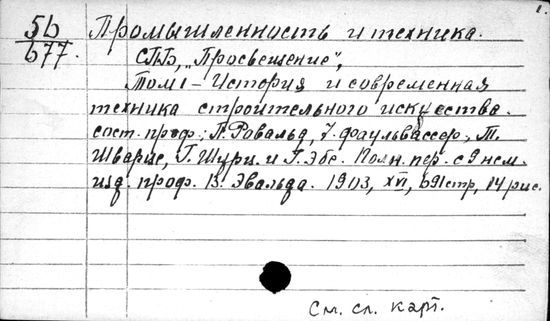 5б
677.
1.
Промышленность и техника.
СПБ, „Просвещение",
Том I – История и современная
техника строительного искусства.
сост. проф.: Л. Ровальд, Г. Фаульвассер, Т.
Шварце, Г. Шури. и Г. Эбе. Полн. пер. с 9 нем.
изд. проф. В. Эвальда. 1903, XVI, 691 стр, 14 рис.
См. сл. карт.